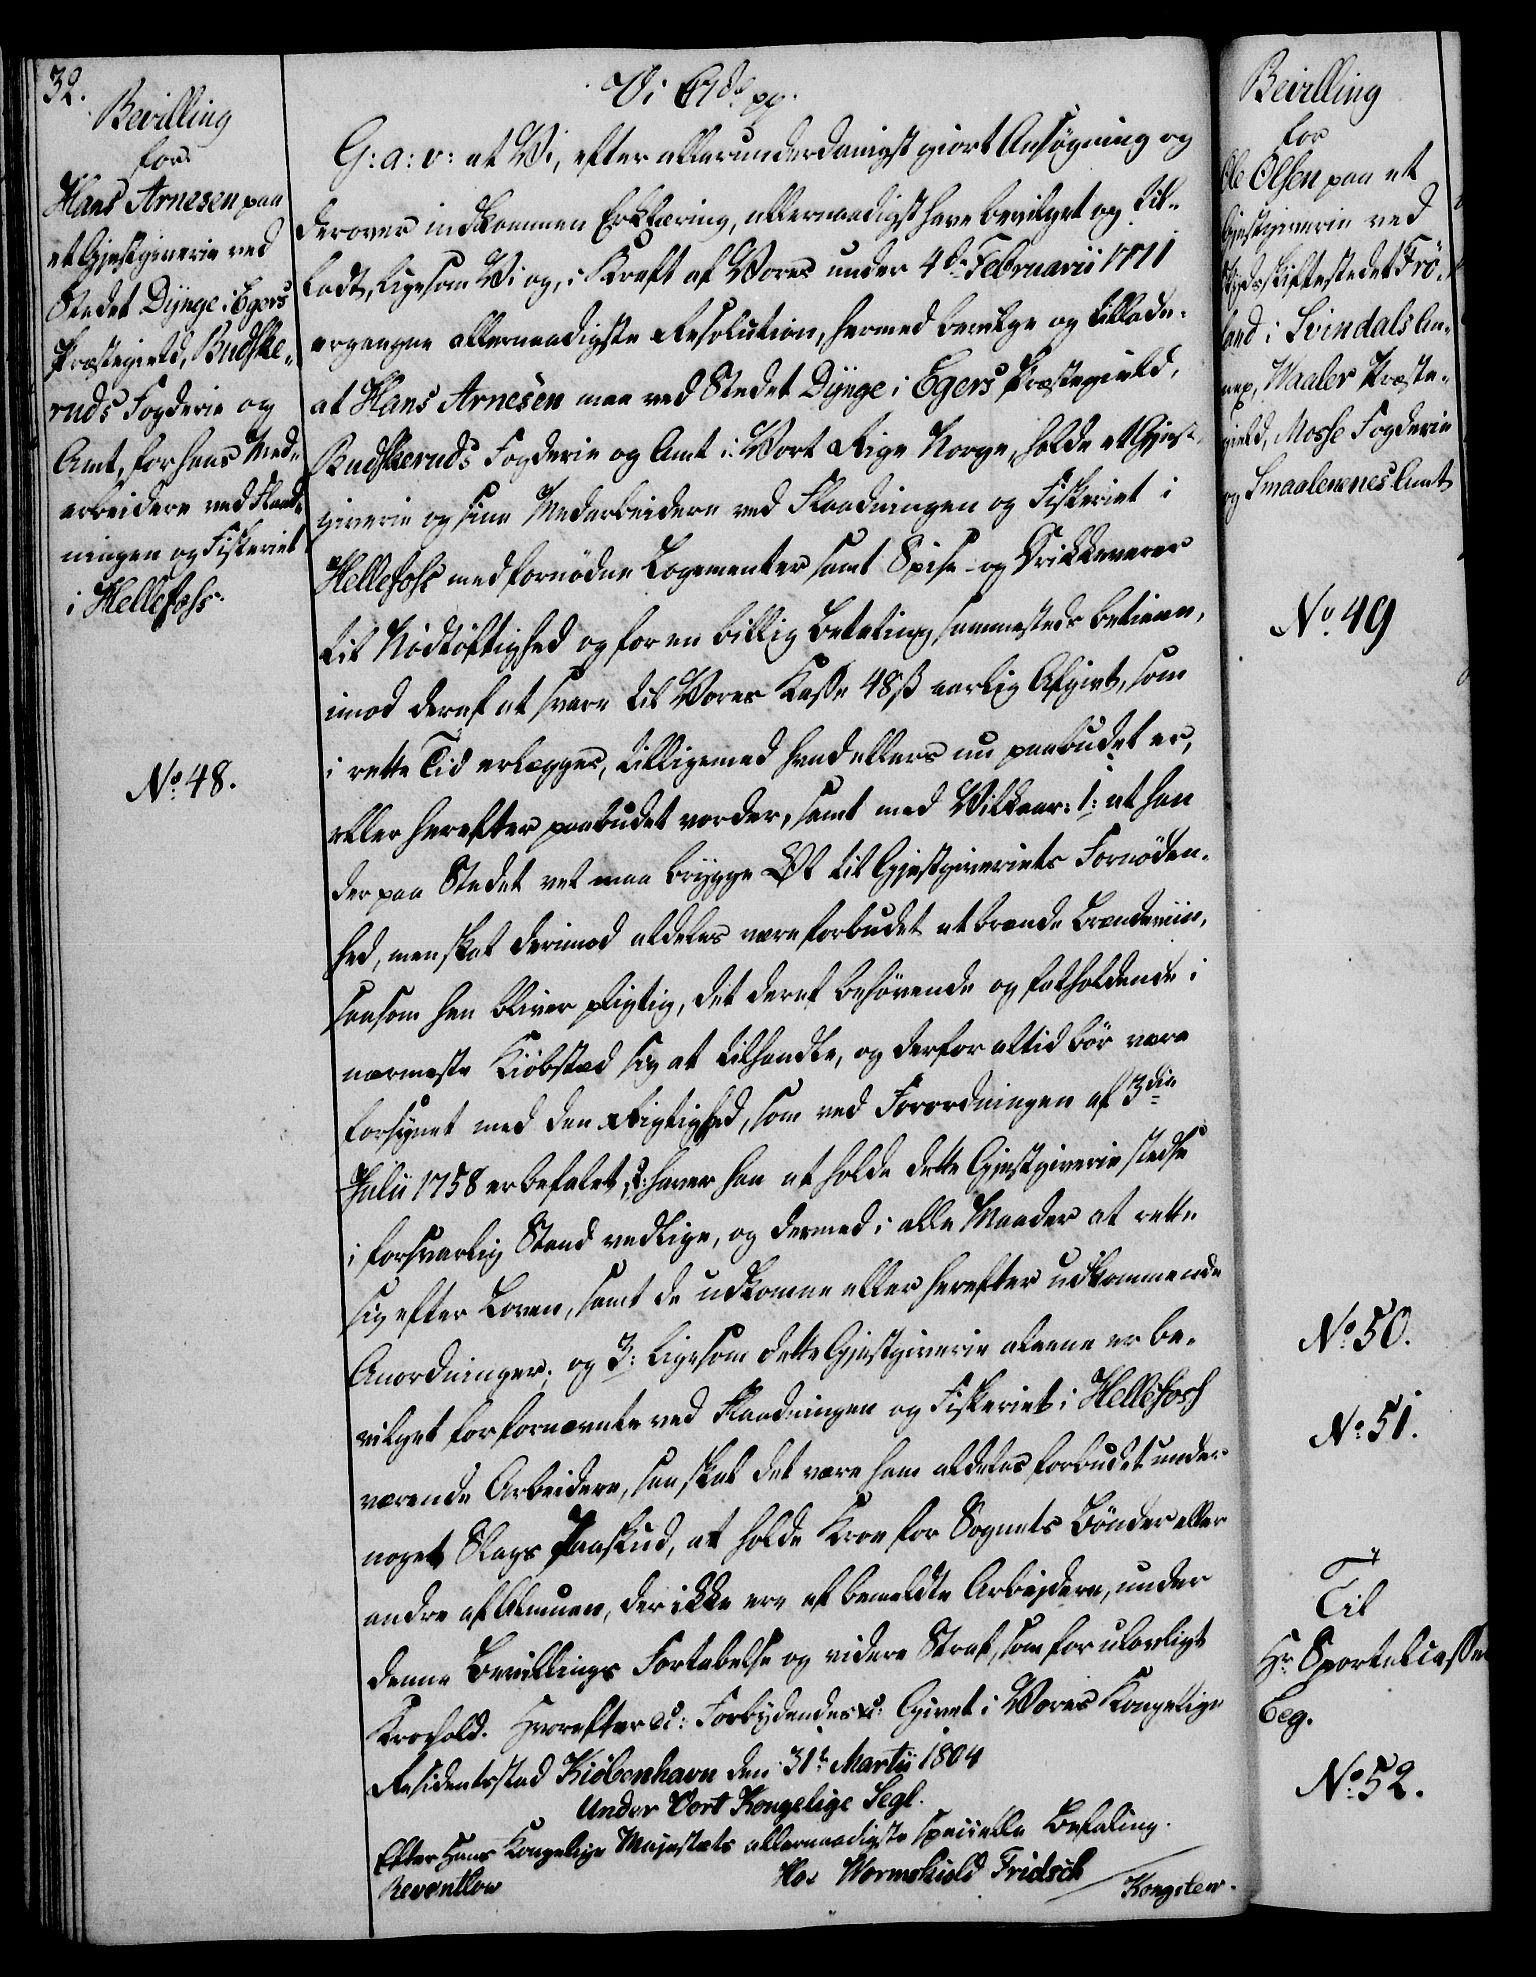 32.
Bevilling
for
Hans Arnesen paa
et Gjestgiverie ved
Stedet Dynge i Egers
Præstegield, Budske-
ruds Fogderie og
Amt, for hans Med-
arbeidere ved Flaad-
ningen og Fiskeriet
i Hellefoss.
No. 48.
Vi C 7de pp.
G: a: v: at Vi, efter allerunderdanigst giort Ansøgning og
derover indkommen Erklæring, allernaadigst have bevilget og til-
ladt, ligesom Vi og, i Kraft af Vores under 4de Februarii 1771
ergangne allernaadigste Resolution, hermed bevilge og tillade,
at Hans Arnesen maa ved Stedet Dynge i Egers Præstegield,
Budskeruds Fogderie og Amt i Vort Rige Norge, holde et Gjest-
giverie og sine Medarbeidere ved Flaadningen og Fiskeriet i
Hellefoss med fornødne Logementer samt Spise- og Drikkevarer
til Nødtøftighed og for en billig Betaling sammesteds betiene,
imod deraf at svare til Vores Kasse 48 ß aarlig Afgivt, som
i rette Tid erlægges, tilligemed hvad ellers nu paabudet er,
eller herefter paabudet vorder, samt med Vilkaar: 1: at han
der paa Stedet vel maa brygge Øl til Gjestgiveriets Fornøden-
hed, men skal derimod aldeles være forbudet at brænde Brændeviin,
saasom han bliver pligtig, det deraf behøvende og falholdende i
nærmeste Kiøbstad sig at tilhandle, og derfor altid bør være
forsynet med den Rigtighed, som ved Forordningen af 3die
Julii 1758 er befalet; 2: haver han at holde dette Gjestgiverie stedse
i forsvarlig Stand vedlige, og dermed i alle Maader at rette
sig efter Loven, samt de udkomne eller herefter udkommende
Anordninger; og 3: ligesom dette Gjestgiverie alene er be-
vilget for fornævnte ved Flaadningen og Fiskeriet i Hellefoss
værende Arbeidere, saa skal det være ham aldeles forbudet under
noget Slags Paaskud, at holde Kroe for Sognets Bønder eller
andre af Almuen, der ikke ere af bemeldte Arbeidere, under
denne Bevillings Fortabelse og videre Straf, som for ulovligt
Krohold. Hvorefter &c: Forbydendes &c: Givet i Vores Kongelige
Residentsstad Kiøbenhavn den 31t Martii 1804
Under Vort Kongelige Segl.
Efter Hans Kongelige Majestæts allernaadigste specielle Befaling.
Reventlow Hoe Wormskiold Fridsch
Kongslew.
Bevilling
for
Ole Olsen paa et
Gjestgiverie ved
Skydsskiftestedet Frö-
land i Svindals An-
nex, Waaler Præste-
gield, Mosse Fogderie
og Smaalenenes Amt
No. 49
No. 50.
No. 51.
Til
Hr Sportelcasse
Ceg.
No. 52.